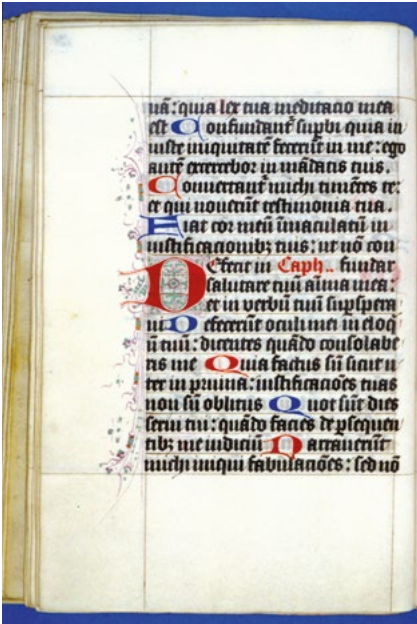 uā: quia lex tua meditacio mea
est Confundant̄ sup̄bi quia in
iuste iniquitatē fecerūt in me: ego
autē exercebor in mādatis tuis.
Conuertant̄ michi timētes te:
et qui nouerūt testimonia tua.
Fiat cor meū īmaculatū in
iustificacionibꝫ tuis: ut nō con
Defecit in Caph.. fundar
salutare tuū aīma mea:
et in verbū tuū suꝑspera
ui Defecerūt oculi mei in eloq̄
ū tuū: dicentes quādo consolabe
ris me Quia factus sū sicut u
ter in pruina: iustificacōes tuas
non sū oblitus Quot sūt dies
serui tui: quādo facies de ꝑsequen
tibꝫ me iudiciū Narrauerūt
michi iniqui fabulacōes: sed nō